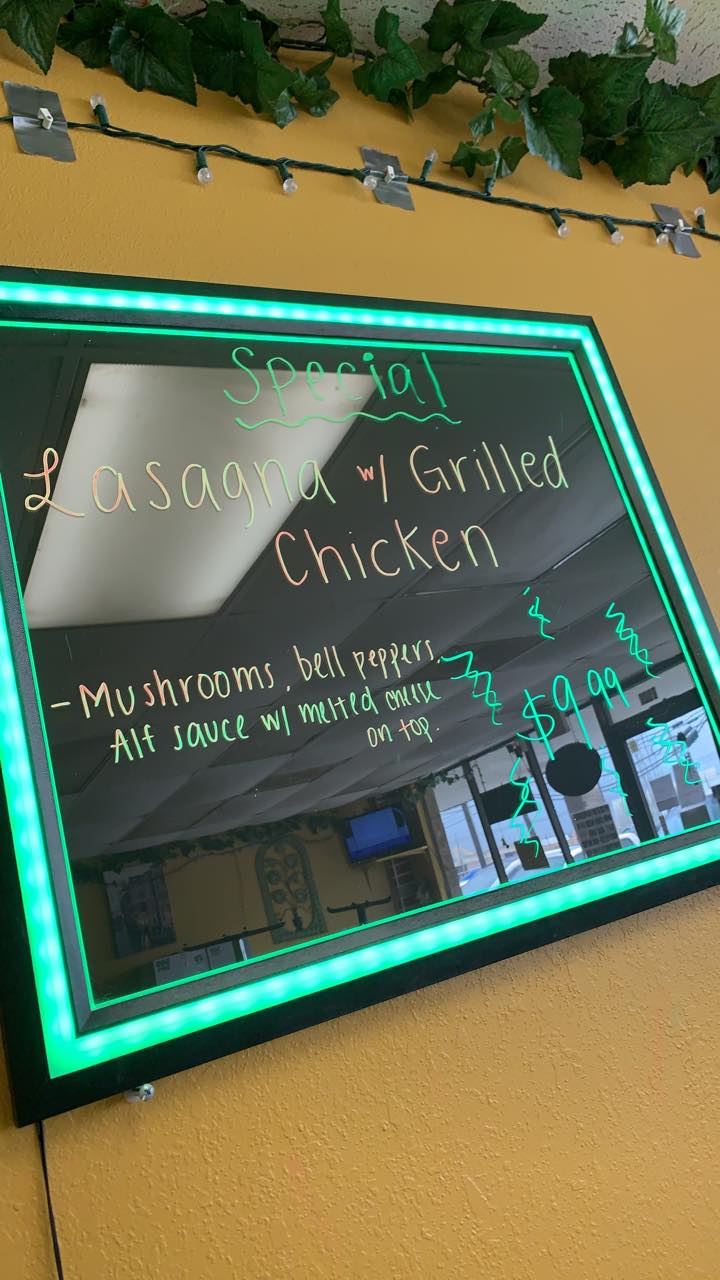 Special
Lasagna w/ Grilled
Chicken
- Mushrooms, bell peppers,
Alf sauce w/ melted cheese
on top.
$9.99